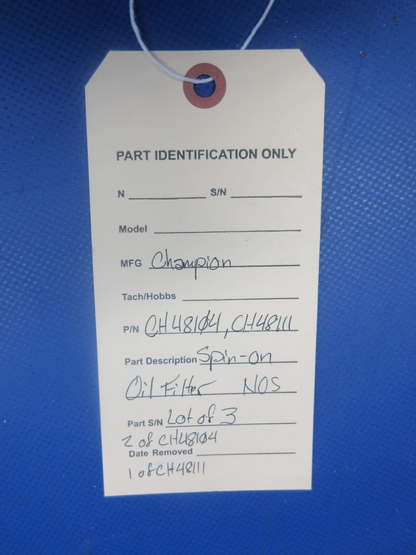 PART IDENTIFICATION ONLY
N S/N
Model
MFG Champion
Tach/Hobbs
P/N CH48104, CH48111
Part Description Spin-on
Oil Filter NOS
Part S/N Lot of 3
2 of CH48104
Date Removed
1 of CH48111